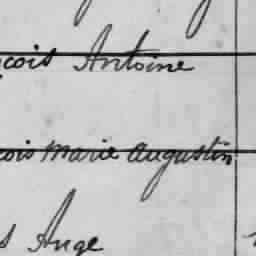 çois Antoine
çois Marie Augustin
s Ange